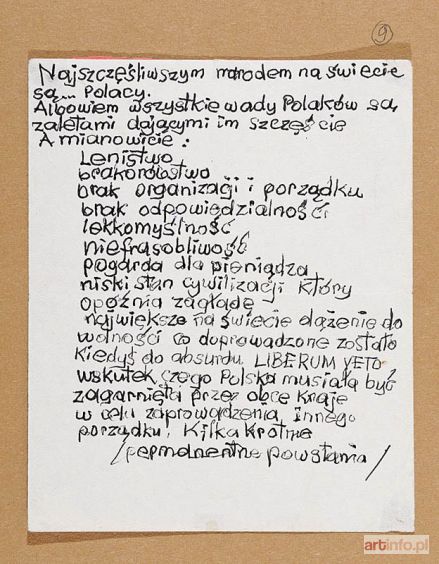 9
Najszczęśliwszym narodem na świecie
są... Polacy.
Albowiem wszystkie wady Polaków są
zaletami dającymi im szczęście
A mianowicie:
Lenistwo
brakorobstwo
brak organizacji i porządku
brak odpowiedzialności
lekkomyślność
niefrasobliwość
pogarda dla pieniądza
niski stan cywilizacji który
opóźnia zagładę
największe na świecie dążenie do
wolności co doprowadzone zostało
kiedyś do absurdu LIBERUM VETO
wskutek czego Polska musiała być
zagarnięta przez obce kraje
w celu zaprowadzenia innego
porządku. Kilkakrotne
/permanentne powstania/
artinfo.pl